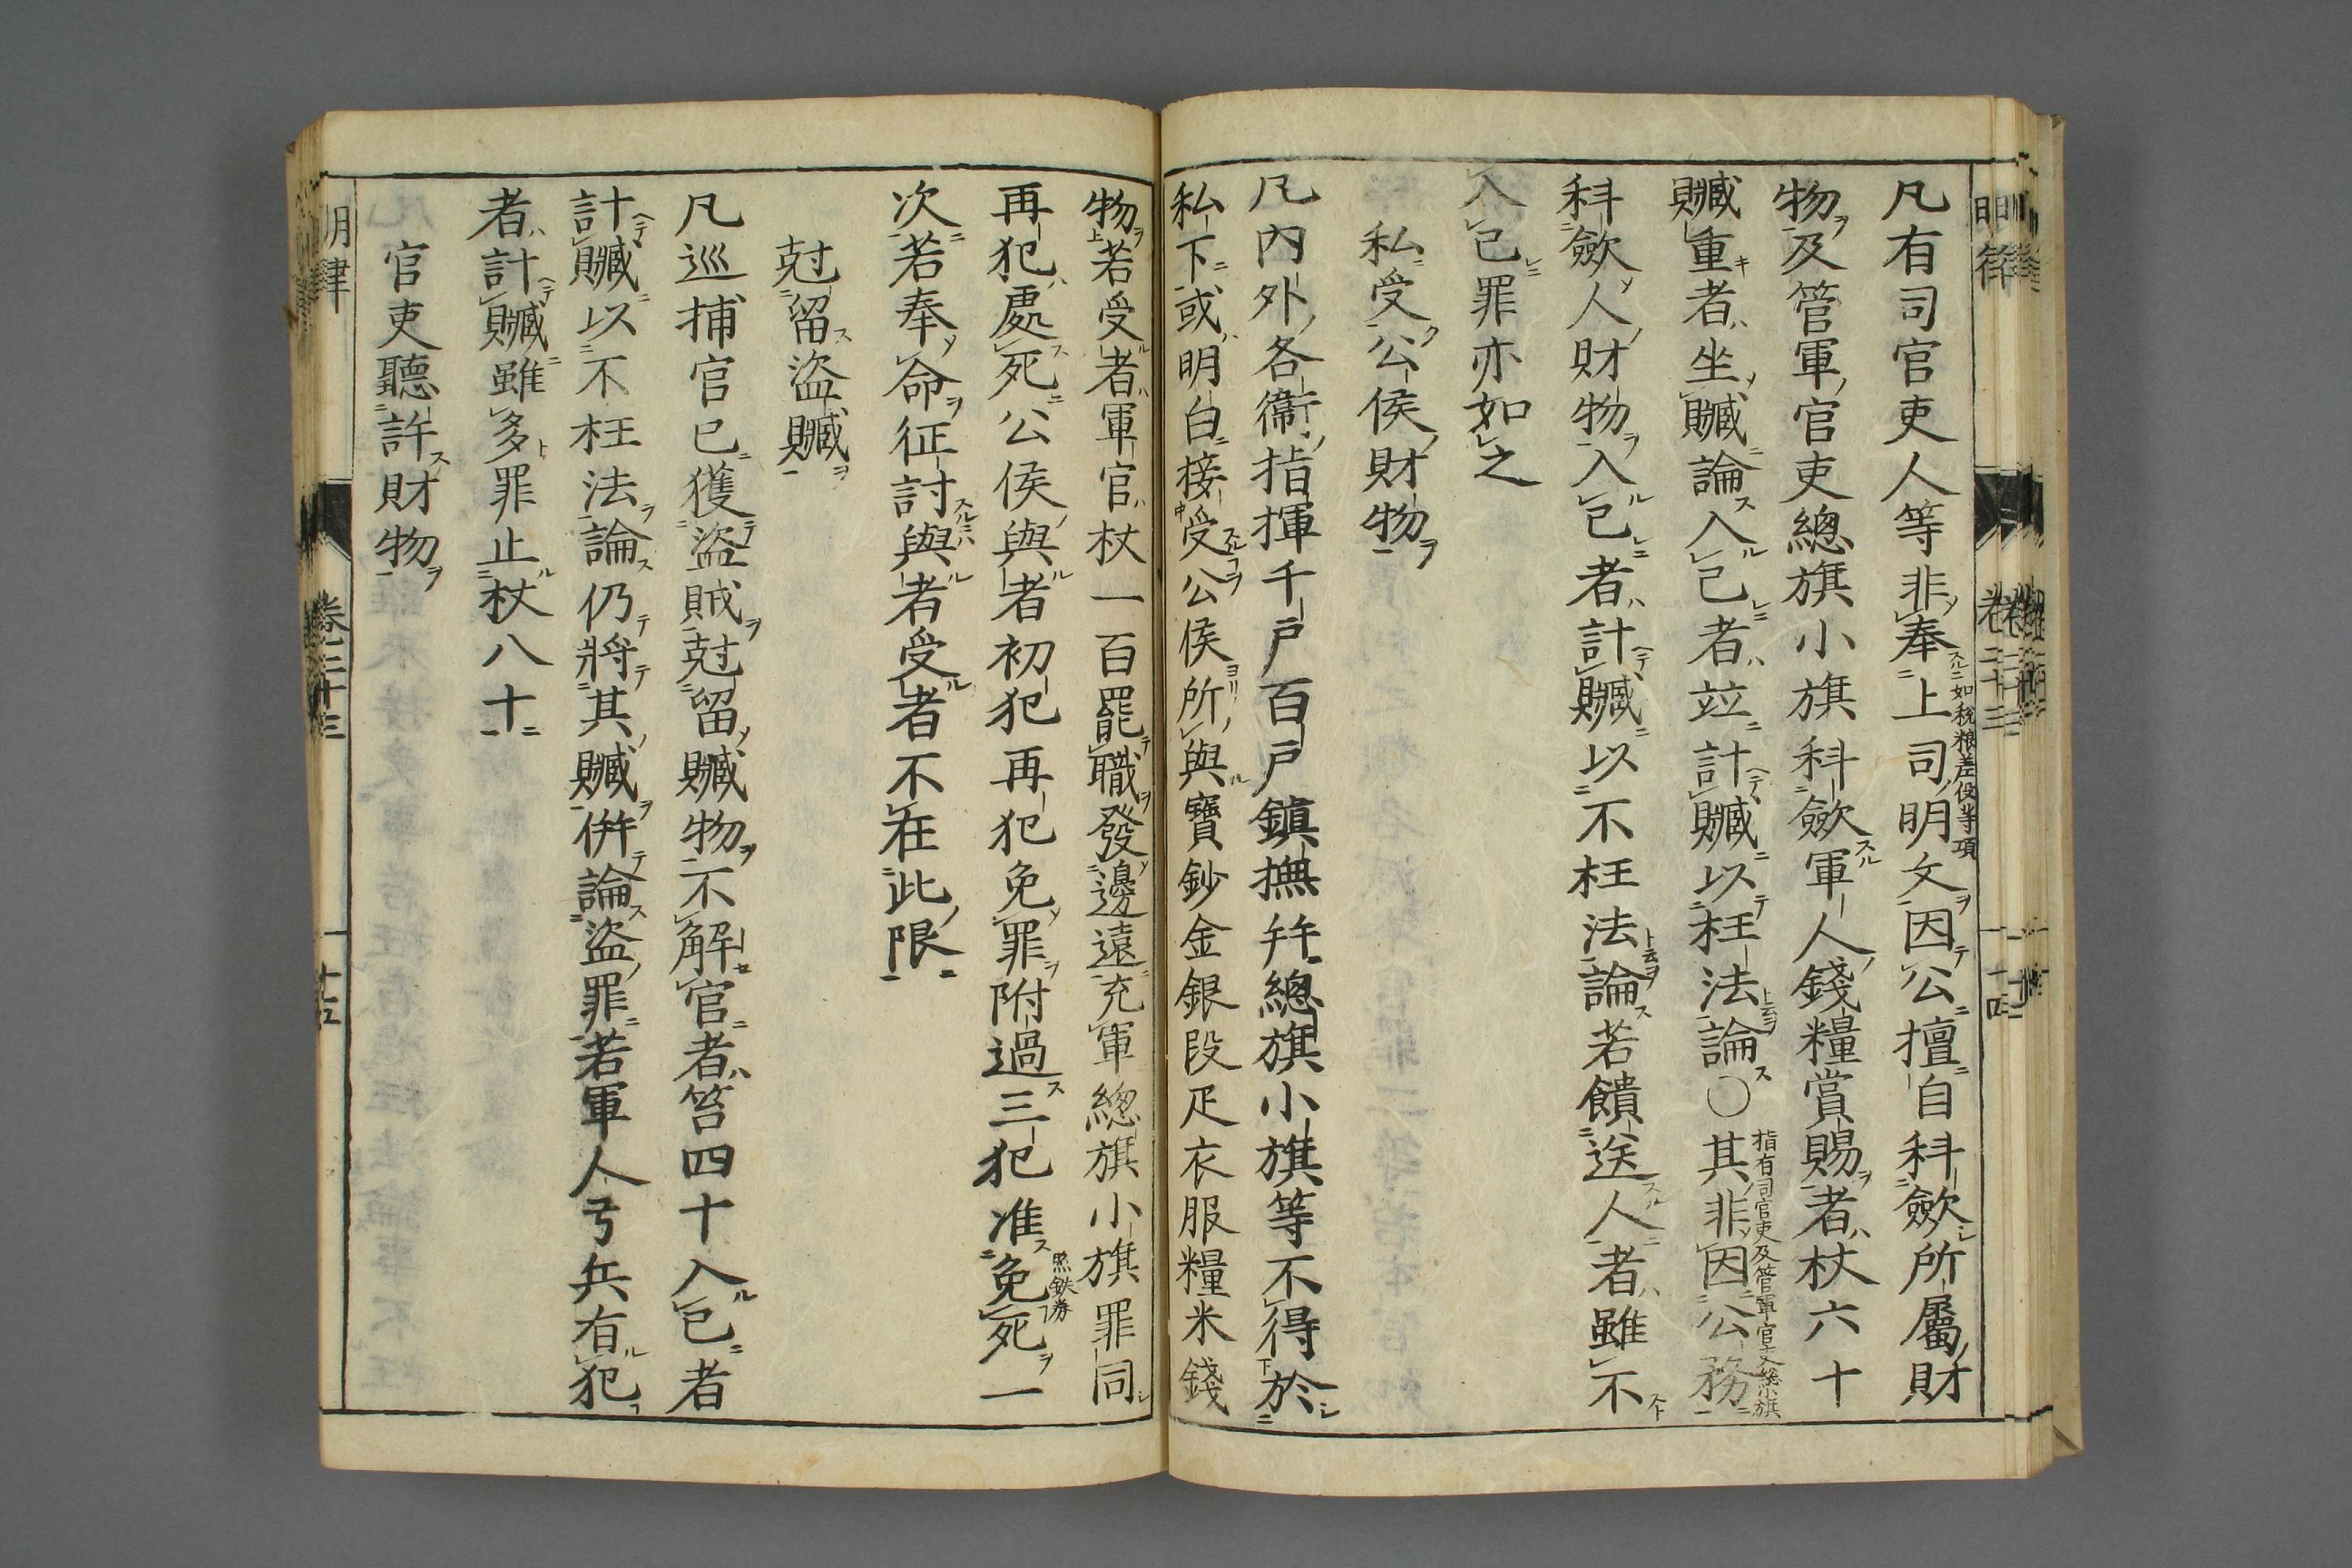 凡有司官吏人等非奉上司明文因公擅自科斂所屬財
如稅粮差役等項
物及管軍官吏總旗小旗科斂軍人錢糧賞賜者杖六十
贓重者坐贓論入己者竝計贓以枉法論〇其非因公務
指有司官吏及管軍官吏總小旗
科斂人財物入己者計贓以不枉法論若饋送人者雖不
入己罪亦如之
私受公侯財物
凡內外各衞指揮千戶百戶鎮撫幷總旗小旗等不得於
私下或明白接受公侯所與寶鈔金銀段疋衣服糧米錢
物若受者軍官杖一百罷職發邊遠充軍總旗小旗罪同
再犯處死公侯與者初犯再犯免罪附過三犯准免死一
照鉄券
次若奉命征討與者受者不在此限
尅留盜贓
凡巡捕官已獲盜賊尅留贓物不解官者笞四十入己者
計贓以不枉法論仍將其贓併論盜罪若軍人弓兵有犯
者計贓雖多罪止杖八十
官吏聽許財物
明律
卷二十三